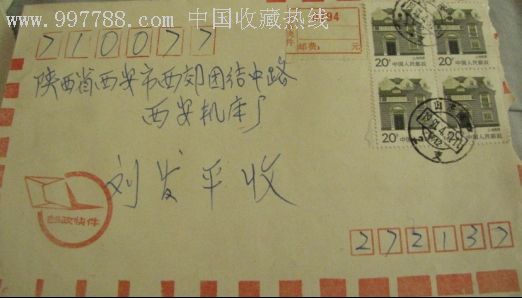 www.997788.com 中国收藏热线
710077
94
件 邮费: 元
陕西省西安市西郊团结中路
西安机床厂
刘发平收
邮政快件
20分 中国人民邮政
20分 中国人民邮政
20分 中国人民邮政
20分 中国人民邮政
山东
272137